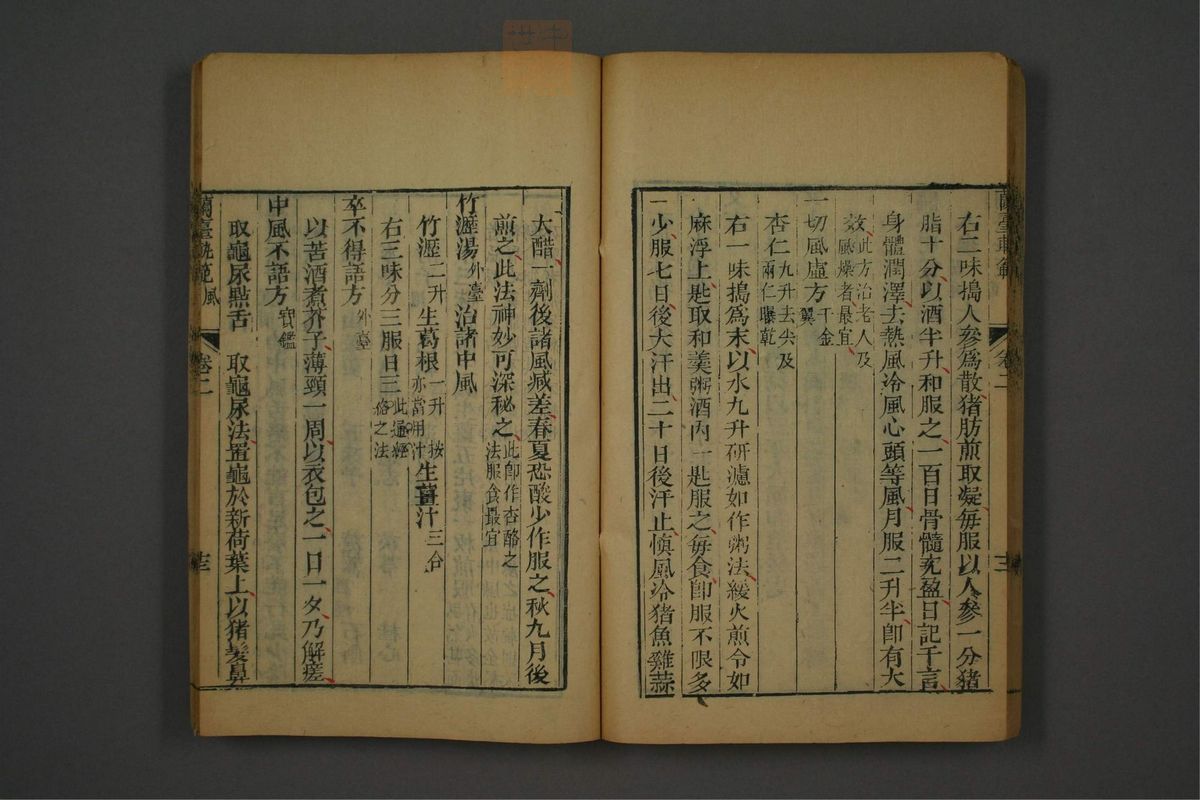 右二味搗人參爲散猪肪煎取凝每服以人參一分猪
脂十分以酒半升和服之一百日骨髓充盈日記千言
身體潤澤去熱風冷風心頭等風月服二升半卽有大
效此方治老人及風燥者最宜
一切風虛方千金翼
杏仁九升去尖及兩仁曝乾
右一味搗爲末以水九升研濾如作粥法緩火煎令如
麻浮上匙取和羹粥酒內一匙服之每食卽服不限多
少服七日後大汗出二十日後汗止慎風冷猪魚雞蒜
大醋一劑後諸風減差春夏恐酸少作服之秋九月後
煎之此法神妙可深秘之此卽作杏酪之法服食最宜
竹瀝湯外臺治諸中風
竹瀝二升 生葛根一升按亦當用汁生薑汁三合
右三味分三服日三此通經絡之法
卒不得語方外臺
以苦酒煮芥子薄頸一周以衣包之一日一夕乃解瘥
中風不語方寶鑑
取龜尿點舌 取龜尿法置龜於新荷葉上以猪髮鼻
蘭臺軌範 風 卷二